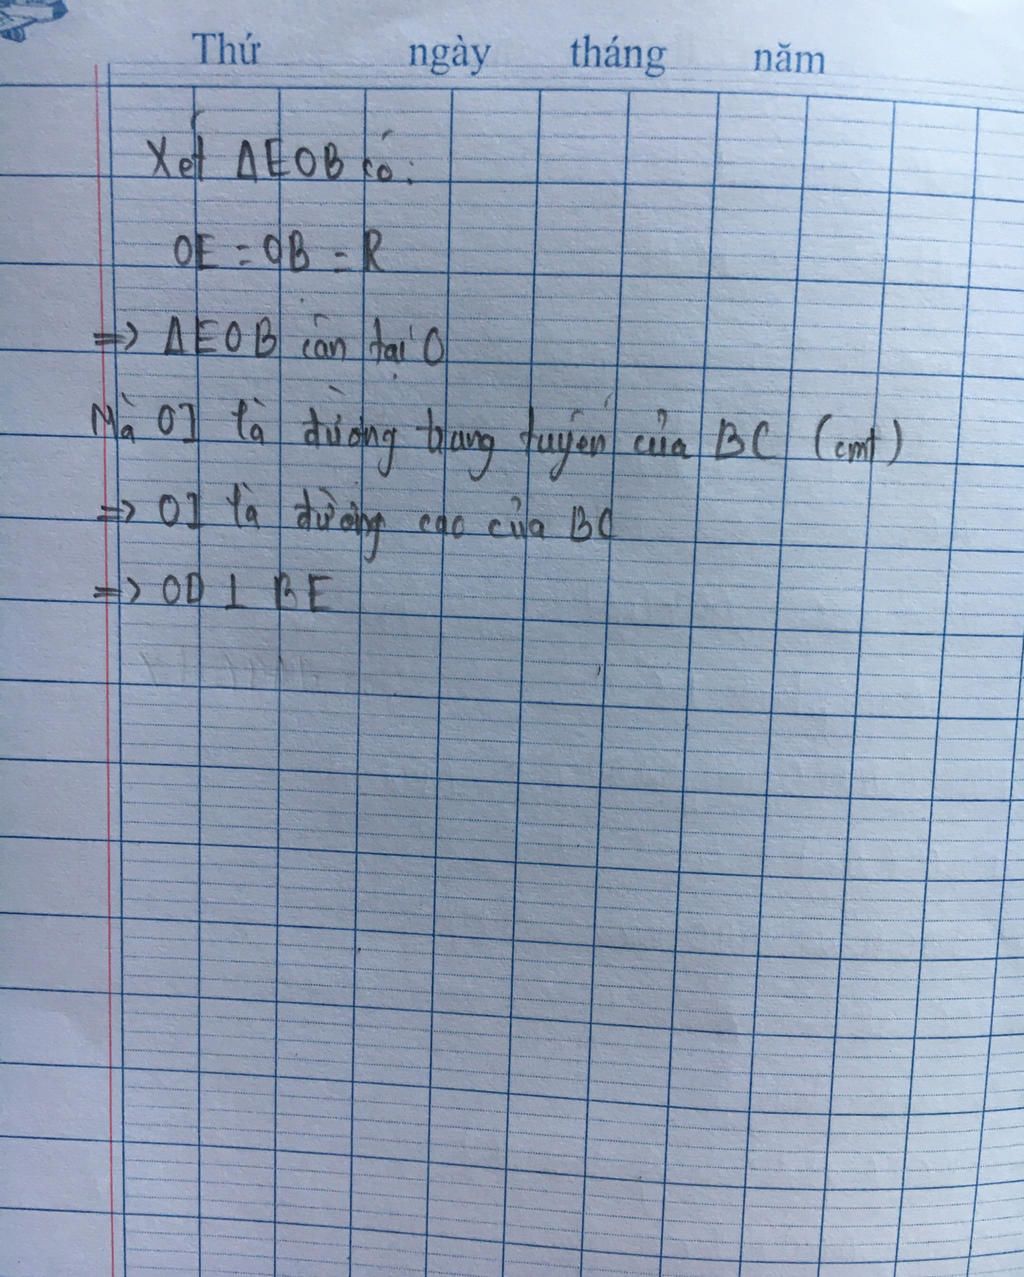 Thứ ngày tháng năm
Xét ΔEOB có:
OE = OB = R
=> ΔEOB cân tại O
Mà OI là đường trung tuyến của BC (cmt)
=> OI là đường cao của BC
=> OD ⊥ BE